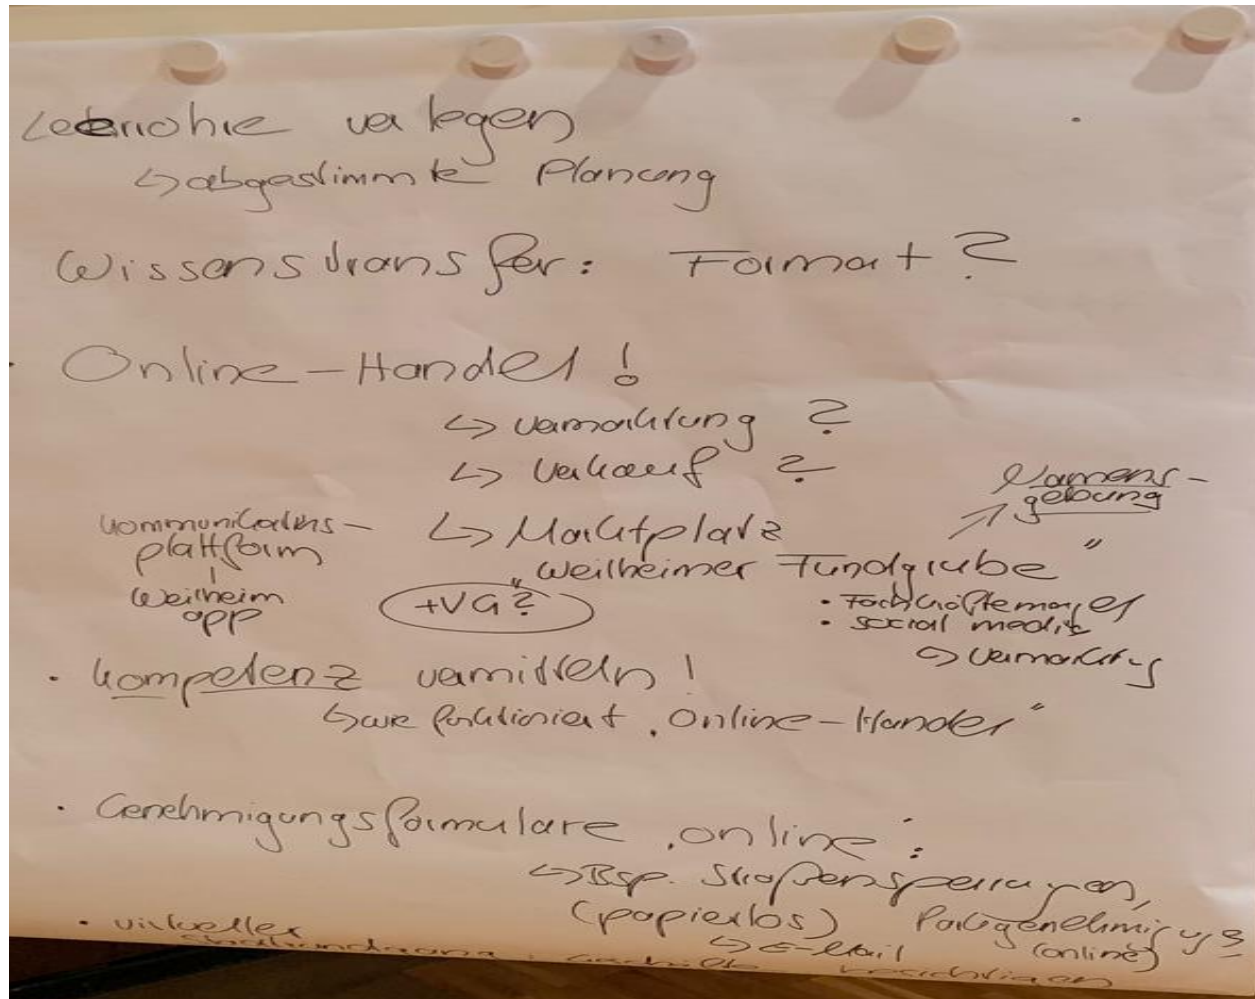 Leerrohre verlegen
↳ abgestimmte Planung
Wissenstransfer: Format?
· Online-Handel!
↳ Vermarktung ?
↳ Verkauf ?
Namens-
gebung
↳ Marktplatz
"Weilheimer Fundgrube"
Kommunikations-
plattform
Weilheim
app
+VG?
· Fachkräfte
· social media
↳ Vermarktung
· Kompetenz vermitteln!
↳ wie funktioniert "Online-Handel"
· Genehmigungsformulare "online":
↳ Bsp. Straßensperrungen,
(papierlos) Parkgenehmigung
↳ E-Mail (online)
· virtueller